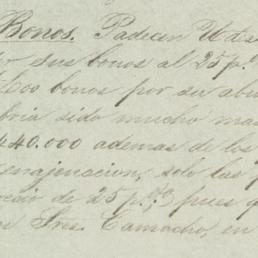 Bonos. Padecen Uds
sus bonos al 25 p.%
600 bonos por su abu
bria sido mucho mas
440.000 ademas de los
enajenacion, solo las
ocio de 25 p.% pues q
os Sres. Camacho, en